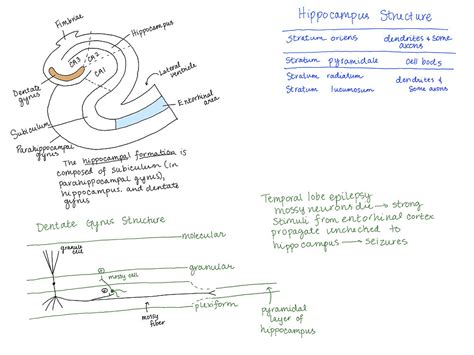 Fimbriae
Hippocampus
CA3
CA2
CA1
Lateral
ventricle
Dentate
gyrus
Entorhinal
area
Subiculum
Parahippocampal
gyrus
The hippocampal formation is
composed of subiculum (in
parahippocampal gyrus),
hippocampus, and dentate
gyrus
Hippocampus Structure
Stratum oriens dendrites & some
axons
Stratum pyramidale cell bodies
Stratum radiatum dendrites &
Stratum lucunosum some axons
Temporal lobe epilepsy
mossy neurons die → strong
stimuli from entorhinal cortex
propagate unchecked to
hippocampus → seizures
Dentate Gyrus Structure
molecular
granule
cell
granular
mossy cell
plexiform
mossy
fiber
pyramidal
layer of
hippocampus